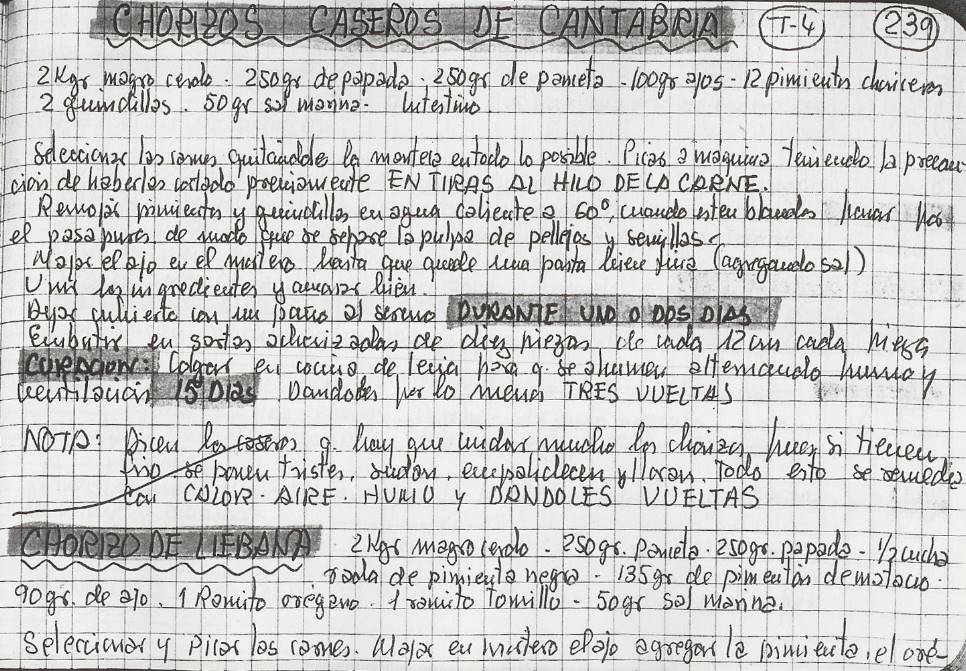 CHORIZOS CASEROS DE CANTABRIA T-4 239
2Kgr magro cerdo - 250gr de papada - 250gr de panceta - 100gr ajos - 12 pimientos choriceros
2 guindillas - 50gr sal marina - Intestino
Seleccionar las carnes quitandole la manteca en todo lo posible. Picar a maquina teniendo la precau-
cion de haberlas cortado previamente EN TIRAS AL HILO DE LA CARNE.
Remojar pimientos y guindillas en agua caliente a 60º, cuando esten blandos pasar por
el pasapures de modo que se separe la pulpa de pellejos y semillas.
Majar el ajo en el mortero hasta que quede una pasta bien fina (agregando sal)
Unir los ingredientes y amasar bien.
Dejar cubierto con un paño al sereno DURANTE UNO O DOS DIAS
Embutir en sartas achorizadas de diez piezas de cada 12cm cada pieza
CURACION: Colgar en cocina de leña para q. se ahumen alternando humo y
ventilacion 15 DIAS Dandoles por lo menos TRES VUELTAS
NOTA: Dicen los caseros q. hay que cuidar mucho los chorizos, pues si tienen
frio se ponen tristes, sudan, empalidecen y lloran. Todo esto se remedia
con CALOR - AIRE - HUMO y DANDOLES VUELTAS
CHORIZO DE LIEBANA 2Kgr magro cerdo - 250gr. panceta - 250gr. papada - 1/2 cucha
rada de pimienta negra - 135gr de pimentón de matacio -
90gr. de ajo - 1 Ramito orégano - 1 ramito tomillo - 50gr sal marina.
Seleccionar y picar las carnes. Majar en mortero el ajo agregar la pimienta, el oré-